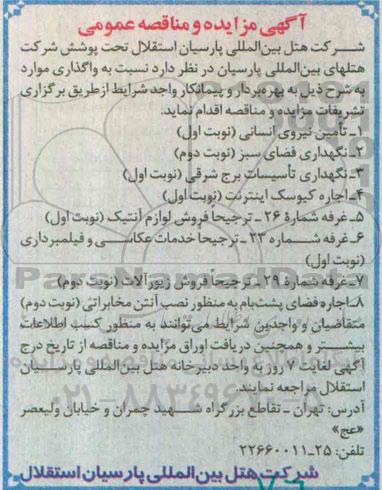 آگهی مزایده و مناقصه عمومی
شرکت هتل بین‌المللی پارسیان استقلال تحت پوشش شرکت
هتلهای بین‌المللی پارسیان در نظر دارد نسبت به واگذاری موارد
به شرح ذیل به بهره‌بردار و پیمانکار واجد شرایط ازطریق برگزاری
تشریفات مزایده و مناقصه اقدام نماید.
۱ـ تأمین نیروی انسانی (نوبت اول)
۲ـ نگهداری فضای سبز (نوبت دوم)
۳ـ نگهداری تأسیسات برج شرقی (نوبت اول)
۴ـ اجاره کیوسک اینترنت (نوبت اول)
۵ـ غرفه شمارهٔ ۲۶ ـ ترجیحاً فروش لوازم آنتیک (نوبت اول)
۶ـ غرفه شماره ۲۳ ـ ترجیحاً خدمات عکاسی و فیلمبرداری
(نوبت اول)
۷ـ غرفه شمارهٔ ۲۹ ـ ترجیحاً فروش زیورآلات (نوبت دوم)
۸ـ اجاره فضای پشت‌بام به منظور نصب آنتن مخابراتی (نوبت دوم)
متقاضیان و واجدین شرایط می‌توانند به منظور کسب اطلاعات
بیشتر و همچنین دریافت اوراق مزایده و مناقصه از تاریخ درج
آگهی لغایت ۷ روز به واحد دبیرخانه هتل بین‌المللی پارسیان
استقلال مراجعه نمایند.
آدرس: تهران ـ تقاطع بزرگراه شهید چمران و خیابان ولیعصر
«عج»
تلفن: ۲۵ـ۲۲۶۶۰۰۱۱
شرکت هتل بین‌المللی پارسیان استقلال
ParsNamadData